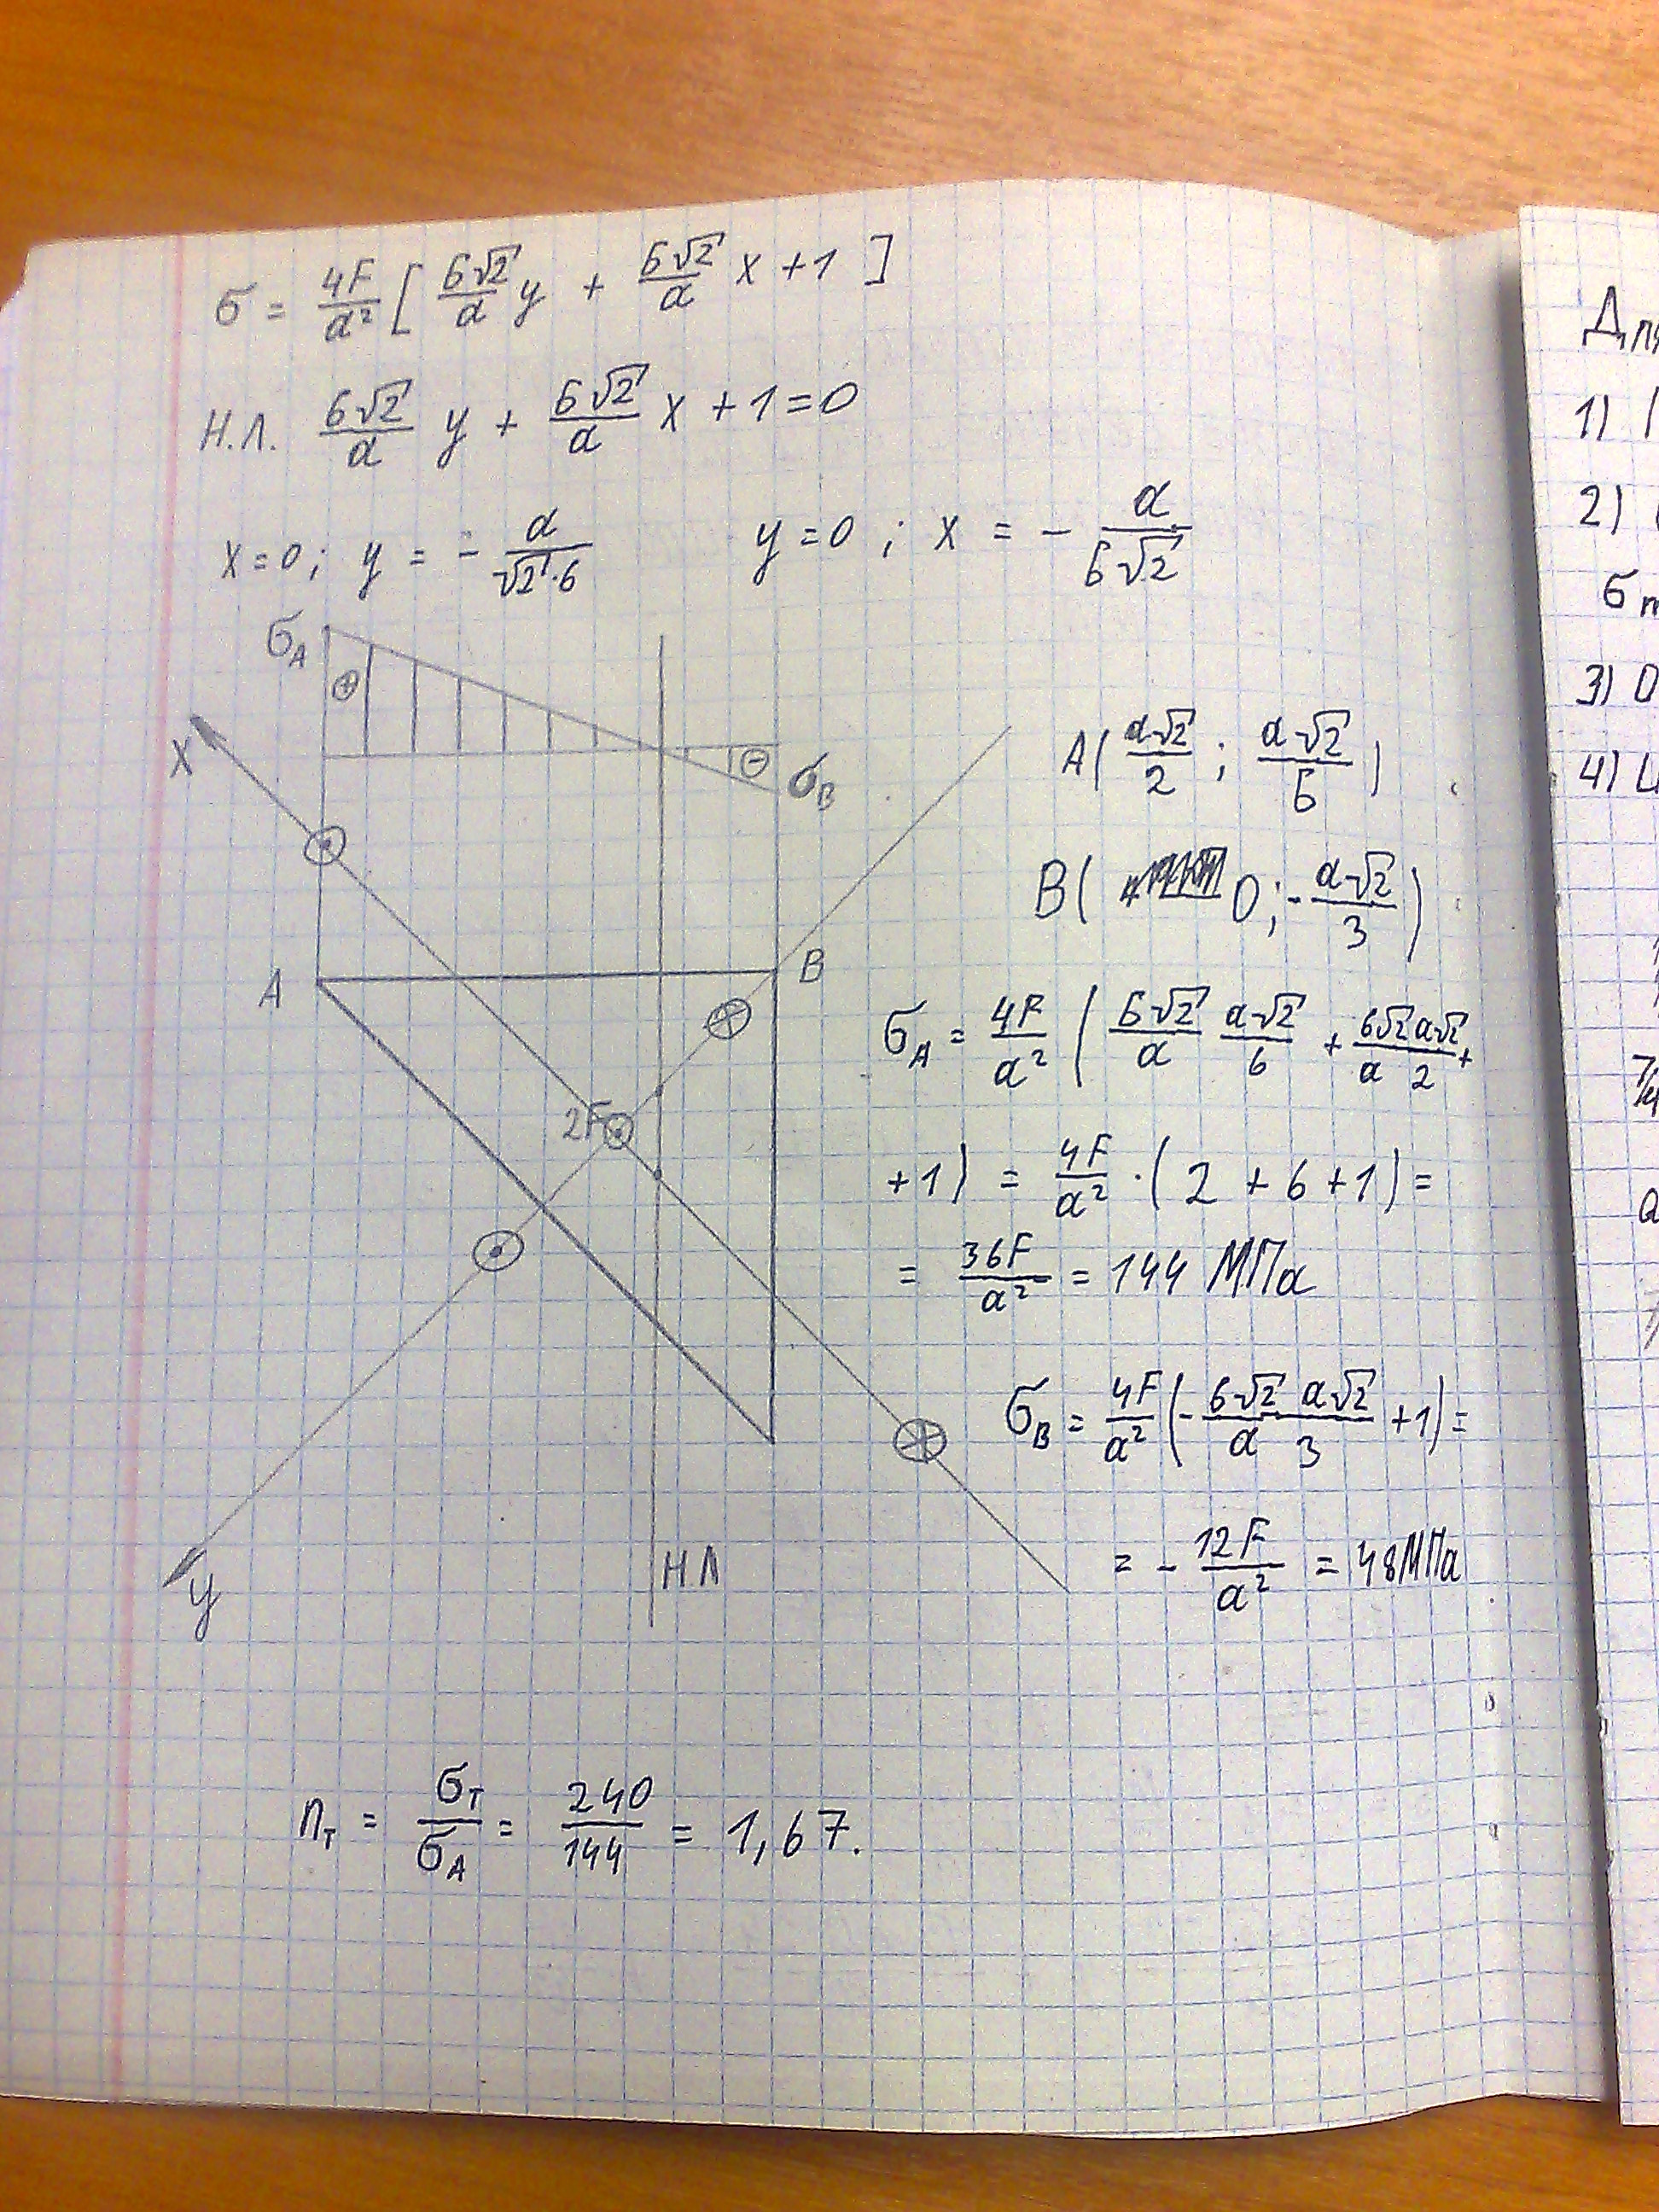 σ = 4F/a² [ 6√2/a y + 6√2/a x + 1 ]
Н.Л. 6√2/a y + 6√2/a x + 1 = 0
x = 0; y = - a/√2·6 y = 0 ; x = - a/6√2
σA
⊕
x
⊖
σB
A( a√2/2 ; a√2/6 )
B( 0; - a√2/3 )
A
B
σA = 4F/a² ( 6√2/a a√2/6 + 6√2/a a√2/2 +
2F
+1) = 4F/a² · ( 2 + 6 + 1 ) =
= 36F/a² = 144 МПа
σB = 4F/a² (- 6√2/a a√2/3 + 1) =
= - 12F/a² = 48 МПа
y
Н.Л
nт = σт/σA = 240/144 = 1,67.
1)
2)
3)
4)